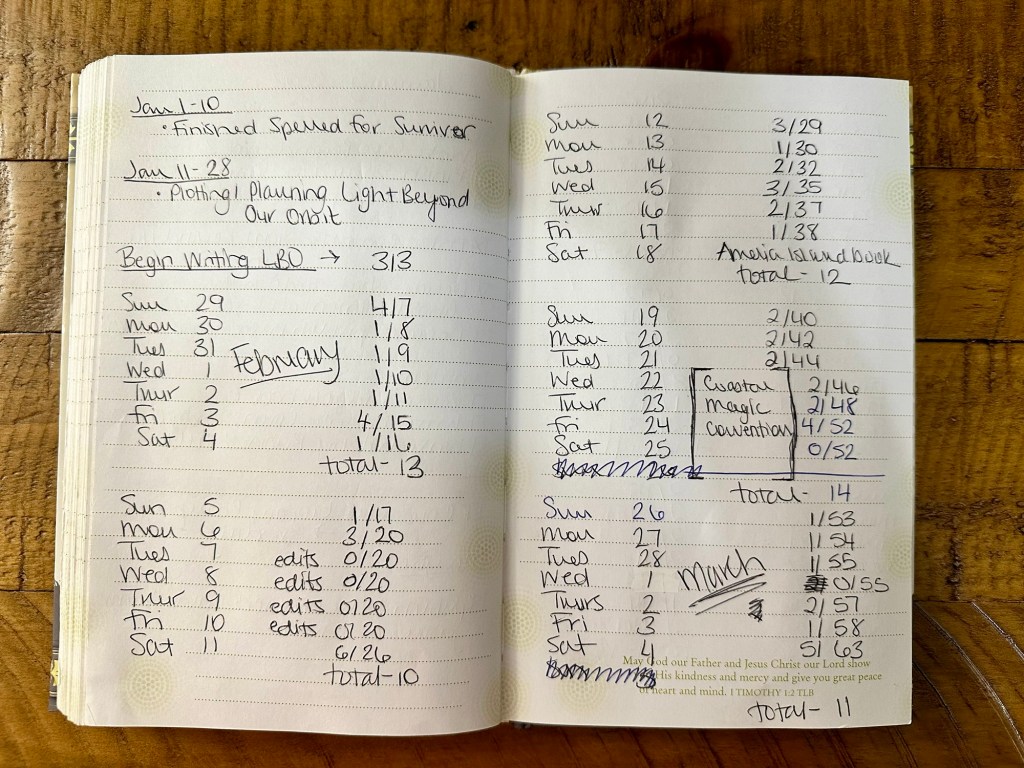 Jan 1-10
• Finished Spelled for Summer
Jan 11-28
• Plotting/Planning Light Beyond
Our Orbit
Begin Writing LBO → 3/3
Sun 29 4/7
Mon 30 1/8
Tues 31 1/9
February
Wed 1 1/10
Thur 2 1/11
Fri 3 4/15
Sat 4 1/16
total- 13
Sun 5 1/17
Mon 6 3/20
Tues 7 edits 0/20
Wed 8 edits 0/20
Thur 9 edits 0/20
Fri 10 edits 0/20
Sat 11 6/26
total-10
Sun 12 3/29
Mon 13 1/30
Tues 14 2/32
Wed 15 3/35
Thur 16 2/37
Fri 17 1/38
Sat 18 Amelia Island book
total- 12
Sun 19 2/40
Mon 20 2/42
Tues 21 2/44
Wed 22 Coastal 2/46
Thur 23 Magic 2/48
Fri 24 Convention 4/52
Sat 25 0/52
total- 14
Sun 26 1/53
Mon 27 1/54
Tues 28 1/55
March
Wed 1 0/55
Thurs 2 2/57
Fri 3 1/58
Sat 4 5/63
May God our Father and Jesus Christ our Lord show
His kindness and mercy and give you great peace
of heart and mind. 1 TIMOTHY 1:2 TLB
total- 11